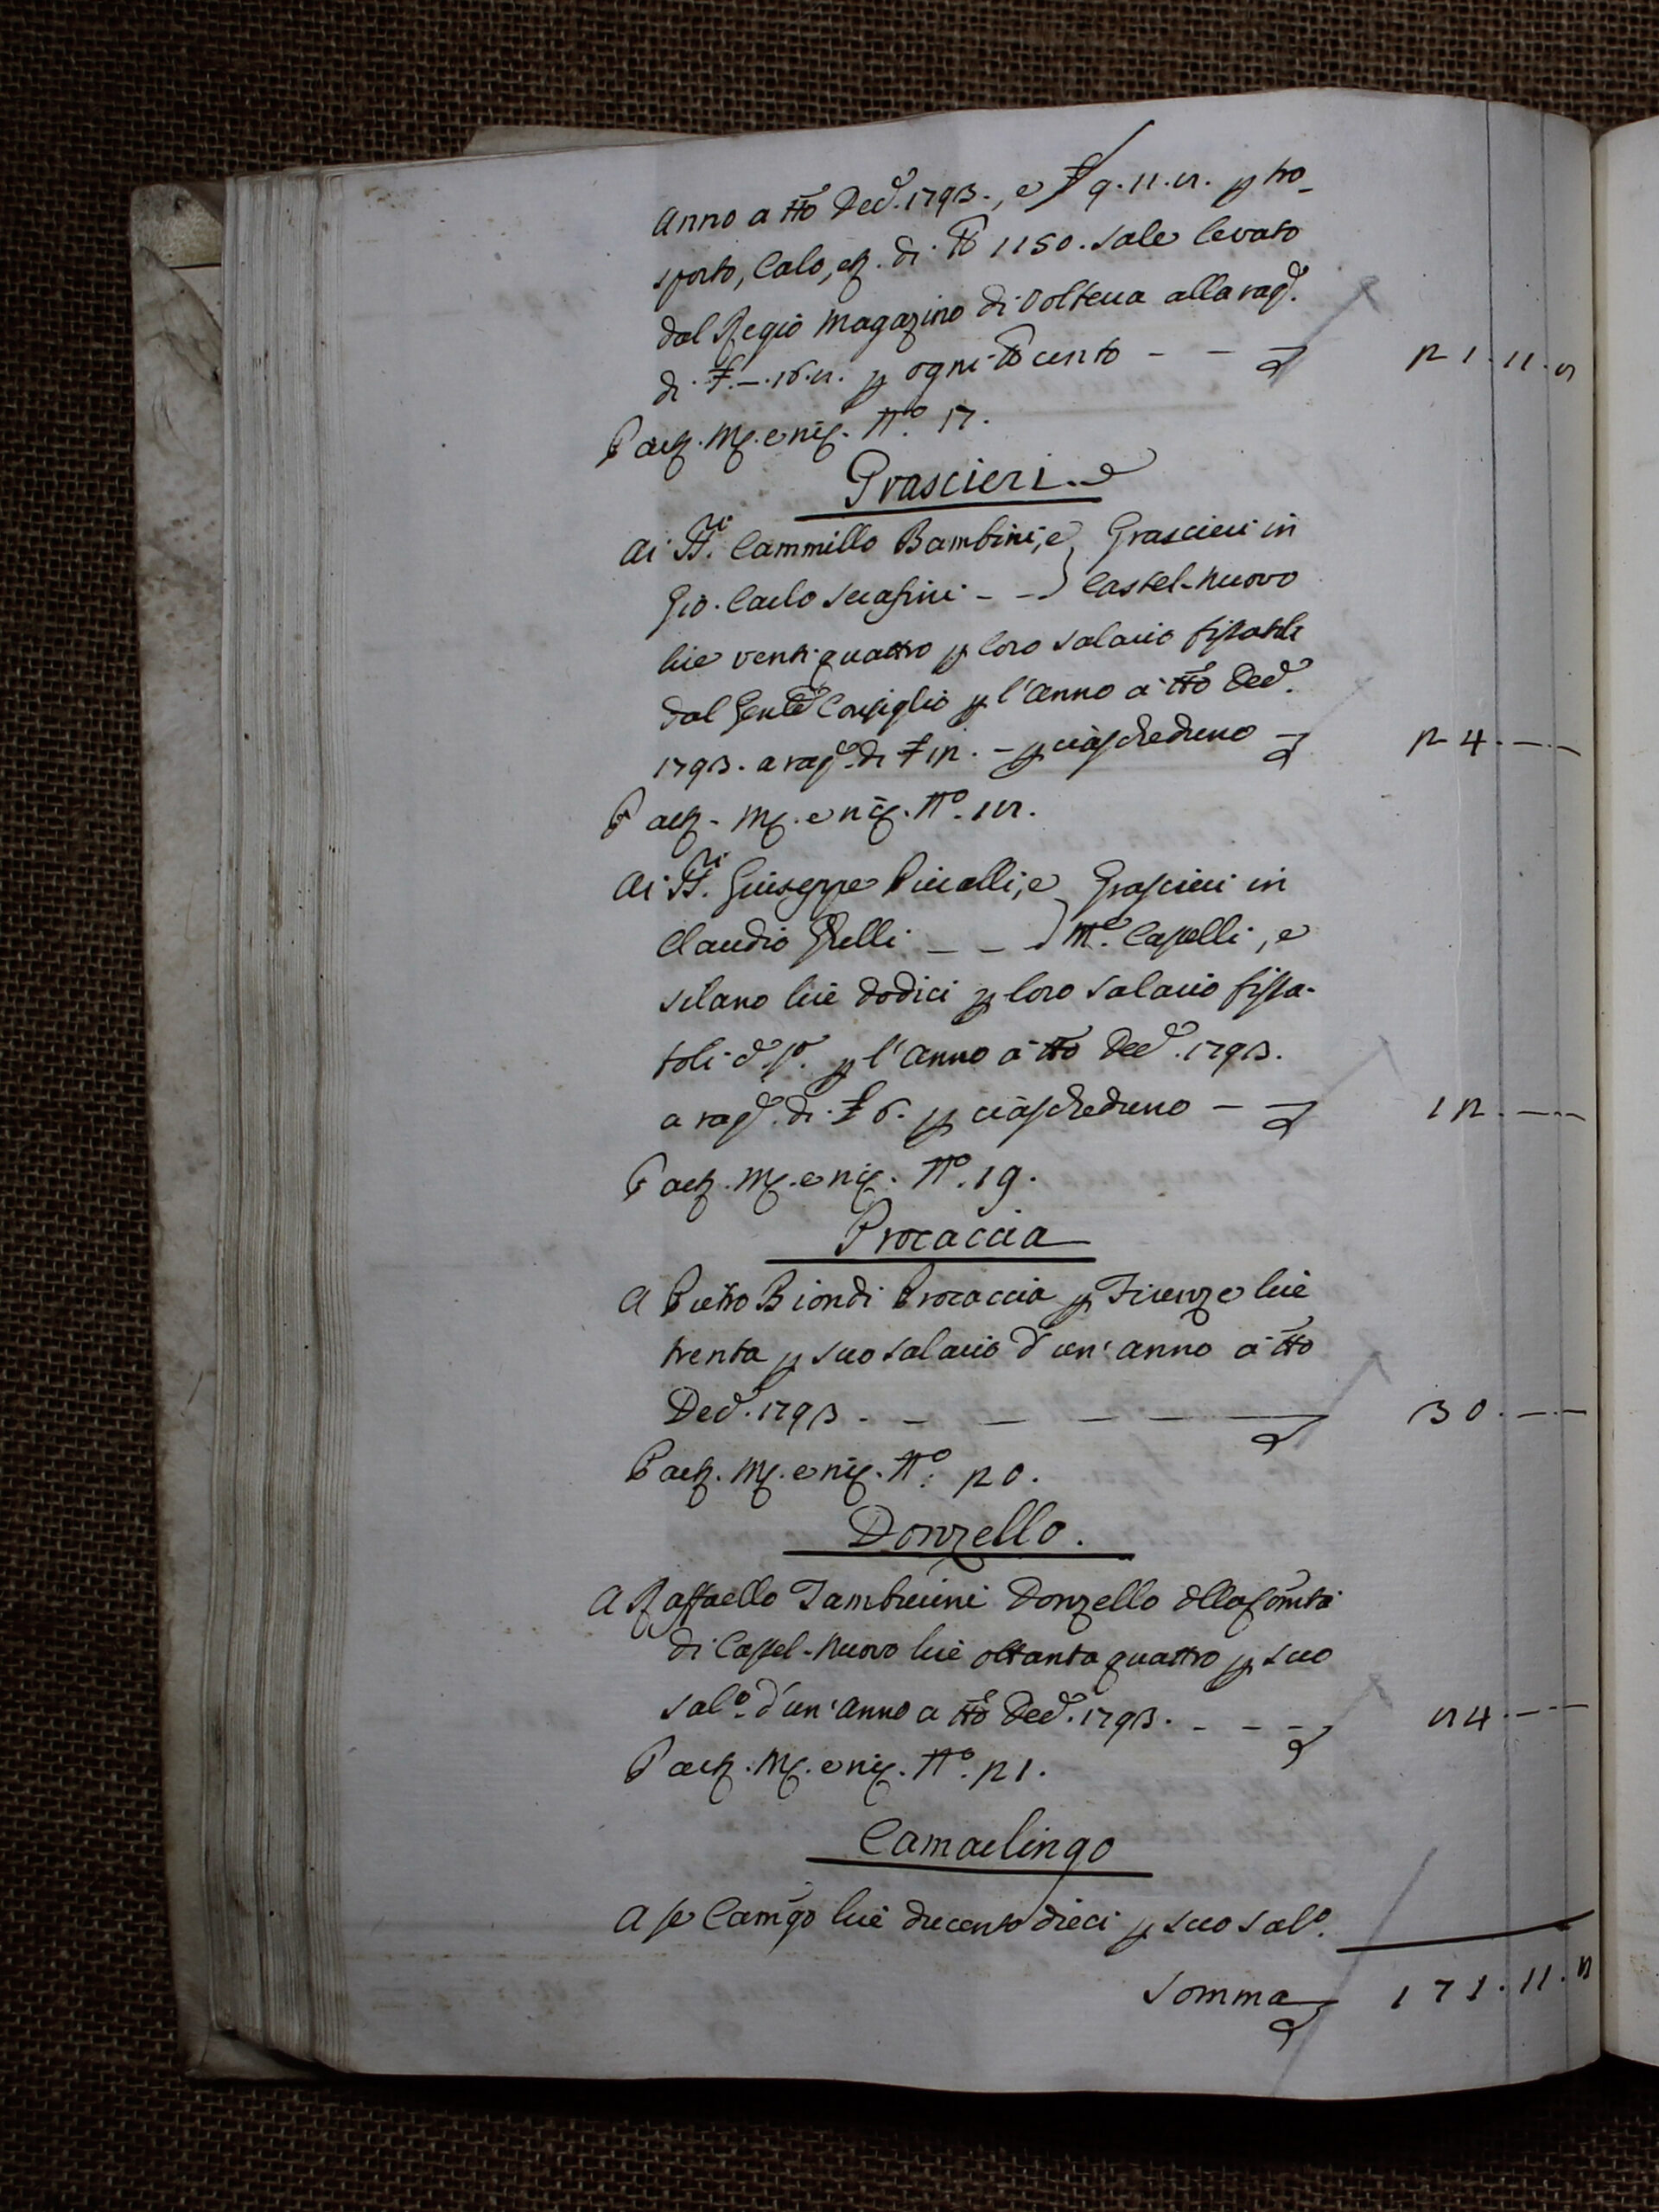 Anno a tto Decᵉ. 1793., e £ 9.11.8. p tra-
sporto, Calo, ec. di ℔ 1150. Sale levato
dal Regio Magazzino di Volterra alla ragᵉ.
di £ -.16.8. p ogni ℔ cento - - 21.11.8
P acq. Mq. e niq. Nº. 17.
Grascieri
Ai SS.ri Cammillo Bambini, e } Grascieri in
Gio. Carlo Serafini - - } Castel-nuovo
lire ventiquattro p loro Salario fissatoli
dal Genle Consiglio p l'anno a tto Decᵉ.
1793. a ragᵉ. di £ 12. - p ciascheduno 24.-.-
P acq. Mq. e niq. Nº. 18.
Ai SS.ri Giuseppe e } Grascieri in
Claudio Grelli - - } Mᵉ. Castelli, e
Silano lire dodici p loro Salario fissa-
toli d. Sº. p l'anno a tto Decᵉ. 1793.
a ragᵉ. di £ 6. p ciascheduno - 12.-.-
P acq. Mq. e niq. Nº. 19.
Procaccia
A Pietro Biondi Procaccia p Firenze lire
trenta p suo Salario d'un'anno a tto
Decᵉ. 1793 - - - - - 30.-.-
P acq. Mq. e niq. Nº. 20.
Donzello.
A Raffaello Tamburini Donzello dlla Comtà
di Castel-nuovo lire ottantaquattro p suo
Salº. d'un'anno a tto Decᵉ. 1793. - - - 84.-.-
P acq. Mq. e niq. Nº. 21.
Camarlingo
A se Camgo lire ducento dieci p suo Salº.
Somma 171.11.8